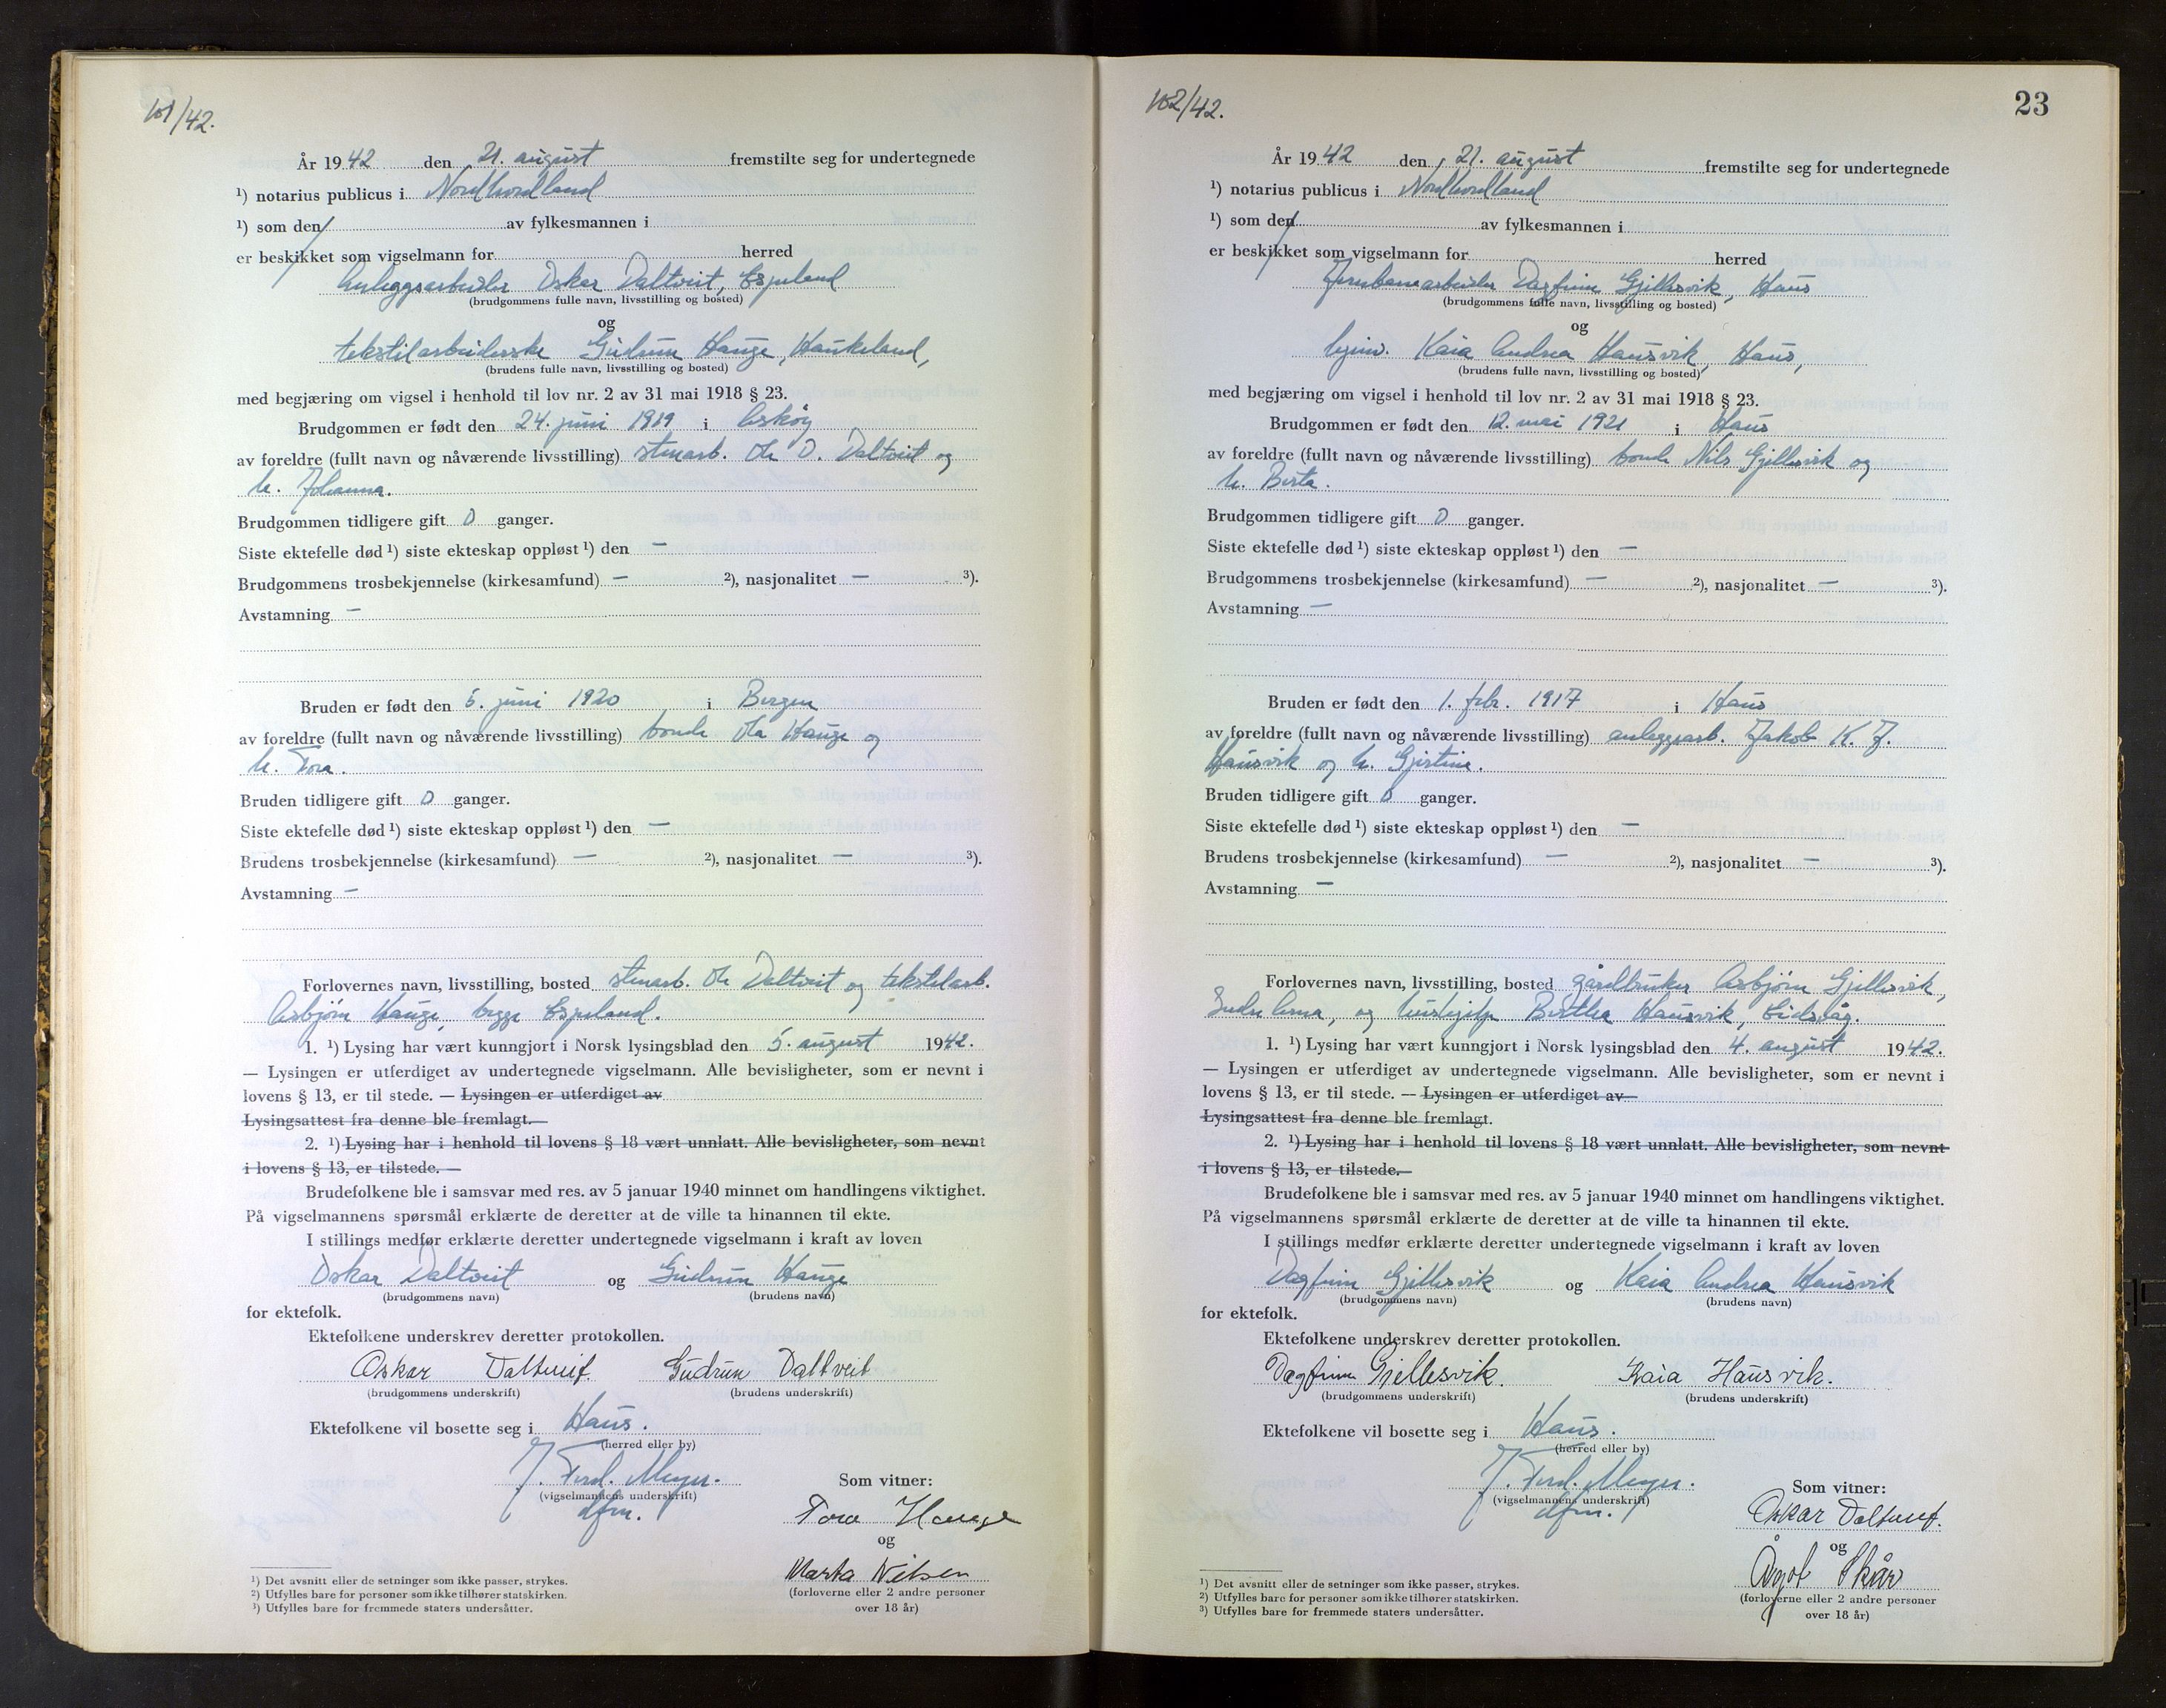 101/42.
År 1942 den 21. august fremstilte seg for undertegnede
¹) notarius publicus i Nordhordland
¹) som den av fylkesmannen i
er beskikket som vigselmann for herred
Anleggsarbeider Oskar Daltveit, Espeland
(brudgommens fulle navn, livsstilling og bosted)
og
tekstilarbeiderske Gudrun Hauge, Haukeland,
(brudens fulle navn, livsstilling og bosted)
med begjæring om vigsel i henhold til lov nr. 2 av 31 mai 1918 § 23.
Brudgommen er født den 24. juni 1919 i Askøy
av foreldre (fullt navn og nåværende livsstilling) stenarb. Ole O. Daltveit og
h. Johanna.
Brudgommen tidligere gift 0 ganger.
Siste ektefelle død ¹) siste ekteskap oppløst ¹) den —
Brudgommens trosbekjennelse (kirkesamfund) — ²), nasjonalitet — ³).
Avstamning —
Bruden er født den 5. juni 1920 i Bergen
av foreldre (fullt navn og nåværende livsstilling) bonde Ola Hauge og
h. Tora.
Bruden tidligere gift 0 ganger.
Siste ektefelle død ¹) siste ekteskap oppløst ¹) den —
Brudens trosbekjennelse (kirkesamfund) — ²), nasjonalitet — ³).
Avstamning —
Forlovernes navn, livsstilling, bosted stenarb. Ole Daltveit og tekstilarb.
Asbjørn Hauge, begge Espeland.
1. ¹) Lysing har vært kunngjort i Norsk lysingsblad den 5. august 1942.
— Lysingen er utferdiget av undertegnede vigselmann. Alle bevisligheter, som er nevnt i
lovens § 13, er til stede. — Lysingen er utferdiget av
Lysingsattest fra denne ble fremlagt.
2. ¹) Lysing har i henhold til lovens § 18 vært unnlatt. Alle bevisligheter, som nevnt
i lovens § 13, er tilstede. —
Brudefolkene ble i samsvar med res. av 5 januar 1940 minnet om handlingens viktighet.
På vigselmannens spørsmål erklærte de deretter at de ville ta hinannen til ekte.
I stillings medfør erklærte deretter undertegnede vigselmann i kraft av loven
Oskar Daltveit og Gudrun Hauge
(brudgommens navn) (brudens navn)
for ektefolk.
Ektefolkene underskrev deretter protokollen.
Oskar Daltveit. Gudrun Daltveit
(brudgommens underskrift) (brudens underskrift)
Ektefolkene vil bosette seg i Haus.
(herred eller by)
J. Ferd. Meyer.
(vigselmannens underskrift)
dfm.
Som vitner:
Tora Hauge
og
Marta Nilsen
(forloverne eller 2 andre personer
over 18 år)
¹) Det avsnitt eller de setninger som ikke passer, strykes.
²) Utfylles bare for personer som ikke tilhører statskirken.
³) Utfylles bare for fremmede staters undersåtter.
102/42.
23
År 1942 den 21. august fremstilte seg for undertegnede
¹) notarius publicus i Nordhordland
¹) som den av fylkesmannen i
er beskikket som vigselmann for herred
Jernbanearbeider Dagfinn Gjellesvik, Haus
(brudgommens fulle navn, livsstilling og bosted)
og
hjemv. Kaia Andrea Hausvik, Haus,
(brudens fulle navn, livsstilling og bosted)
med begjæring om vigsel i henhold til lov nr. 2 av 31 mai 1918 § 23.
Brudgommen er født den 12. mai 1921 i Haus
av foreldre (fullt navn og nåværende livsstilling) bonde Nils Gjellesvik og
h. Berta.
Brudgommen tidligere gift 0 ganger.
Siste ektefelle død ¹) siste ekteskap oppløst ¹) den —
Brudgommens trosbekjennelse (kirkesamfund) — ²), nasjonalitet — ³).
Avstamning —
Bruden er født den 1. febr. 1917 i Haus
av foreldre (fullt navn og nåværende livsstilling) anleggsarb. Jakob K. J.
Hausvik og h. Gjertine.
Bruden tidligere gift 0 ganger.
Siste ektefelle død ¹) siste ekteskap oppløst ¹) den —
Brudens trosbekjennelse (kirkesamfund) — ²), nasjonalitet — ³).
Avstamning —
Forlovernes navn, livsstilling, bosted gårdbruker Asbjørn Gjellesvik,
Indre Arna, og hushjelp Berthea Hausvik, Eidsvåg.
1. ¹) Lysing har vært kunngjort i Norsk lysingsblad den 4. august 1942.
— Lysingen er utferdiget av undertegnede vigselmann. Alle bevisligheter, som er nevnt i
lovens § 13, er til stede. — Lysingen er utferdiget av
Lysingsattest fra denne ble fremlagt.
2. ¹) Lysing har i henhold til lovens § 18 vært unnlatt. Alle bevisligheter, som nevnt
i lovens § 13, er tilstede.—
Brudefolkene ble i samsvar med res. av 5 januar 1940 minnet om handlingens viktighet.
På vigselmannens spørsmål erklærte de deretter at de ville ta hinannen til ekte.
I stillings medfør erklærte deretter undertegnede vigselmann i kraft av loven
Dagfinn Gjellesvik og Kaia Andrea Hausvik
(brudgommens navn) (brudens navn)
for ektefolk.
Ektefolkene underskrev deretter protokollen.
Dagfinn Gjellesvik. Kaia Hausvik.
(brudgommens underskrift) (brudens underskrift)
Ektefolkene vil bosette seg i Haus.
(herred eller by)
J. Ferd. Meyer.
(vigselmannens underskrift)
dfm.
Som vitner:
Oskar Daltveit.
og
Ågot Skår
(forloverne eller 2 andre personer
over 18 år)
¹) Det avsnitt eller de setninger som ikke passer, strykes.
²) Utfylles bare for personer som ikke tilhører statskirken.
³) Utfylles bare for fremmede staters undersåtter.